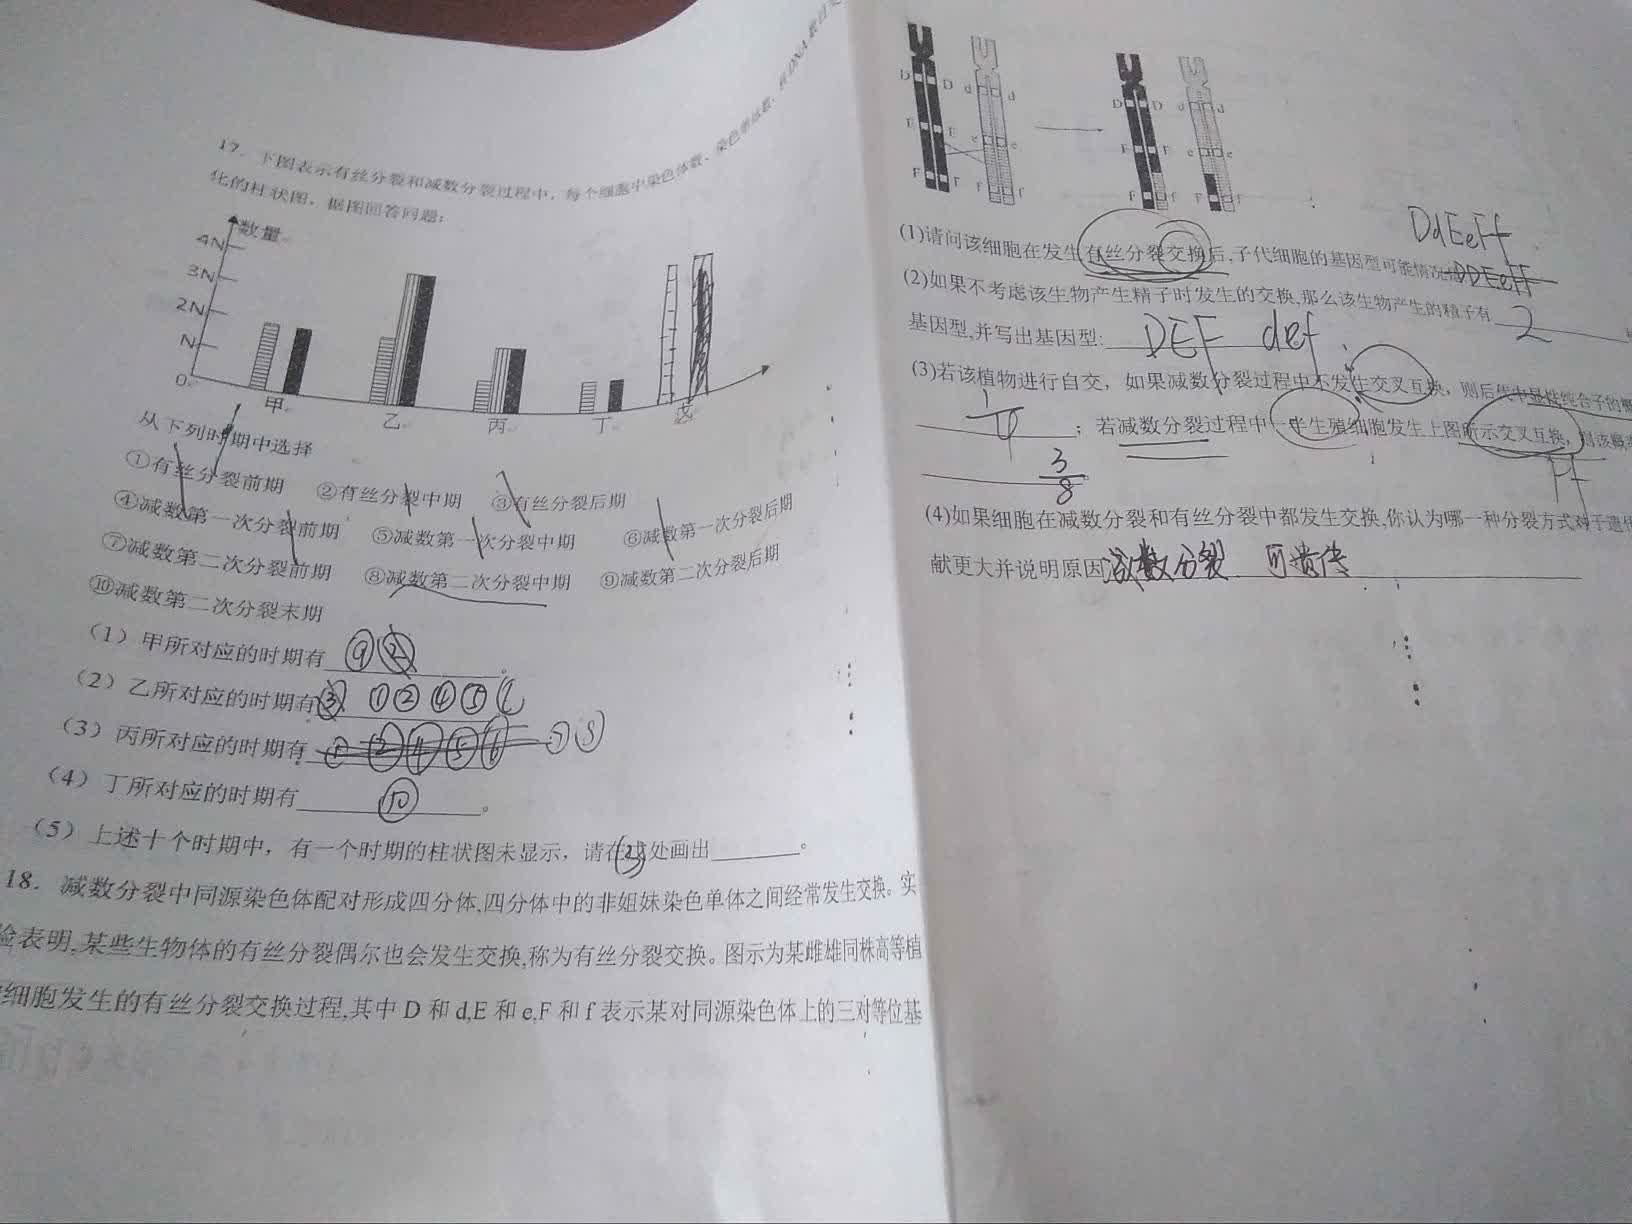 17. 下图表示有丝分裂和减数分裂过程中，每个细胞中染色体数、染色单体数、核DNA数目
化的柱状图，据图回答问题：
数量
4N
3N
2N
N
0
甲 乙 丙 丁 戊
从下列时期中选择
①有丝分裂前期 ②有丝分裂中期 ③有丝分裂后期
④减数第一次分裂前期 ⑤减数第一次分裂中期 ⑥减数第一次分裂后期
⑦减数第二次分裂前期 ⑧减数第二次分裂中期 ⑨减数第二次分裂后期
⑩减数第二次分裂末期
（1）甲所对应的时期有 ⑨ ②。
（2）乙所对应的时期有 ③ ① ② ④ ⑤
（3）丙所对应的时期有 ① ② ④ ⑤ ⑥ ⑦ ⑧
（4）丁所对应的时期有 ⑩。
（5）上述十个时期中，有一个时期的柱状图未显示，请在处画出。
18. 减数分裂中同源染色体配对形成四分体,四分体中的非姐妹染色单体之间经常发生交换。实
验表明,某些生物体的有丝分裂偶尔也会发生交换,称为有丝分裂交换。图示为某雌雄同株高等植
细胞发生的有丝分裂交换过程,其中 D 和 d,E 和 e,F 和 f 表示某对同源染色体上的三对等位基
D D d d D D d d
E E e e E E e e
F F f f F f F f
(1)请问该细胞在发生有丝分裂交换后,子代细胞的基因型可能情况
DdEeFf
(2)如果不考虑该生物产生精子时发生的交换,那么该生物产生的精子有 2
基因型,并写出基因型: DEF def ;
(3)若该植物进行自交，如果减数分裂过程中不发生交叉互换，则后代中显性纯合子的概
；若减数分裂过程中一半生殖细胞发生上图所示交叉互换，则该概
3/8
(4)如果细胞在减数分裂和有丝分裂中都发生交换,你认为哪一种分裂方式对于遗
献更大并说明原因 减数分裂 可遗传